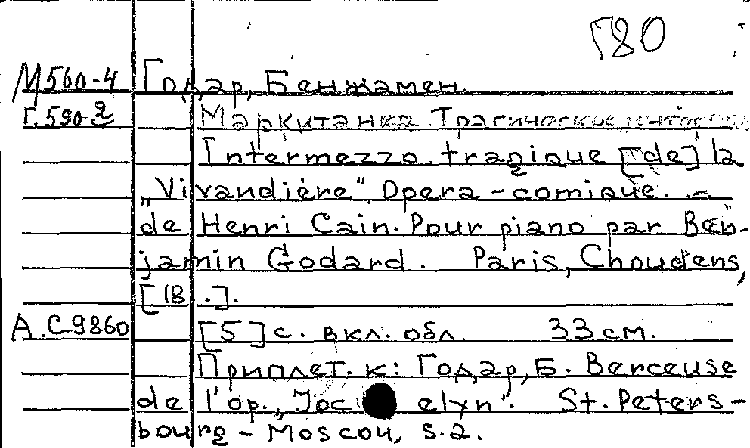 Г80
М560-4 Годар, Бенжамен.
Г.590-2 Маркитанка. Трагическое
Intermezzo tragique [de] la
„Vivandière". Opera-comique. –
de Henri Cain. Pour piano par Ben-
jamin Godard. Paris, Choudens,
[18 .].
А.С9860 [5] с. вкл. обл. 33 см.
Приплет. к: Годар, Б. Berceuse
de l'op. „Jocelyn". St. Peters-
bourg – Moscou, s.a.